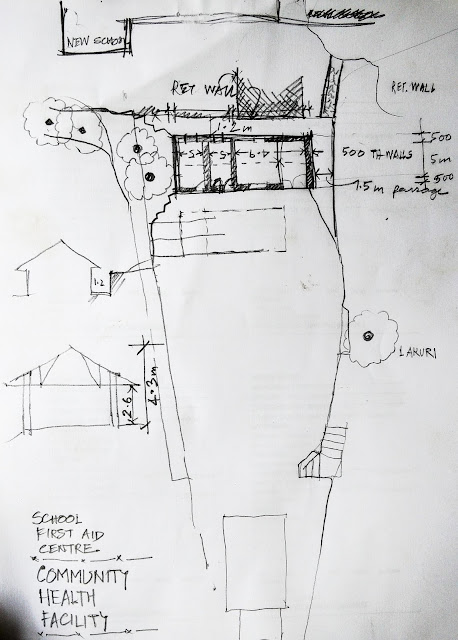 NEW SCHOOL
RET WALL
RET. WALL
1.2 m
500
500 TH WALLS
5m
500
1.5 m passage
1.2
LAKURI
2.6
4.3m
SCHOOL
FIRST AID
CENTRE
COMMUNITY
HEALTH
FACILITY